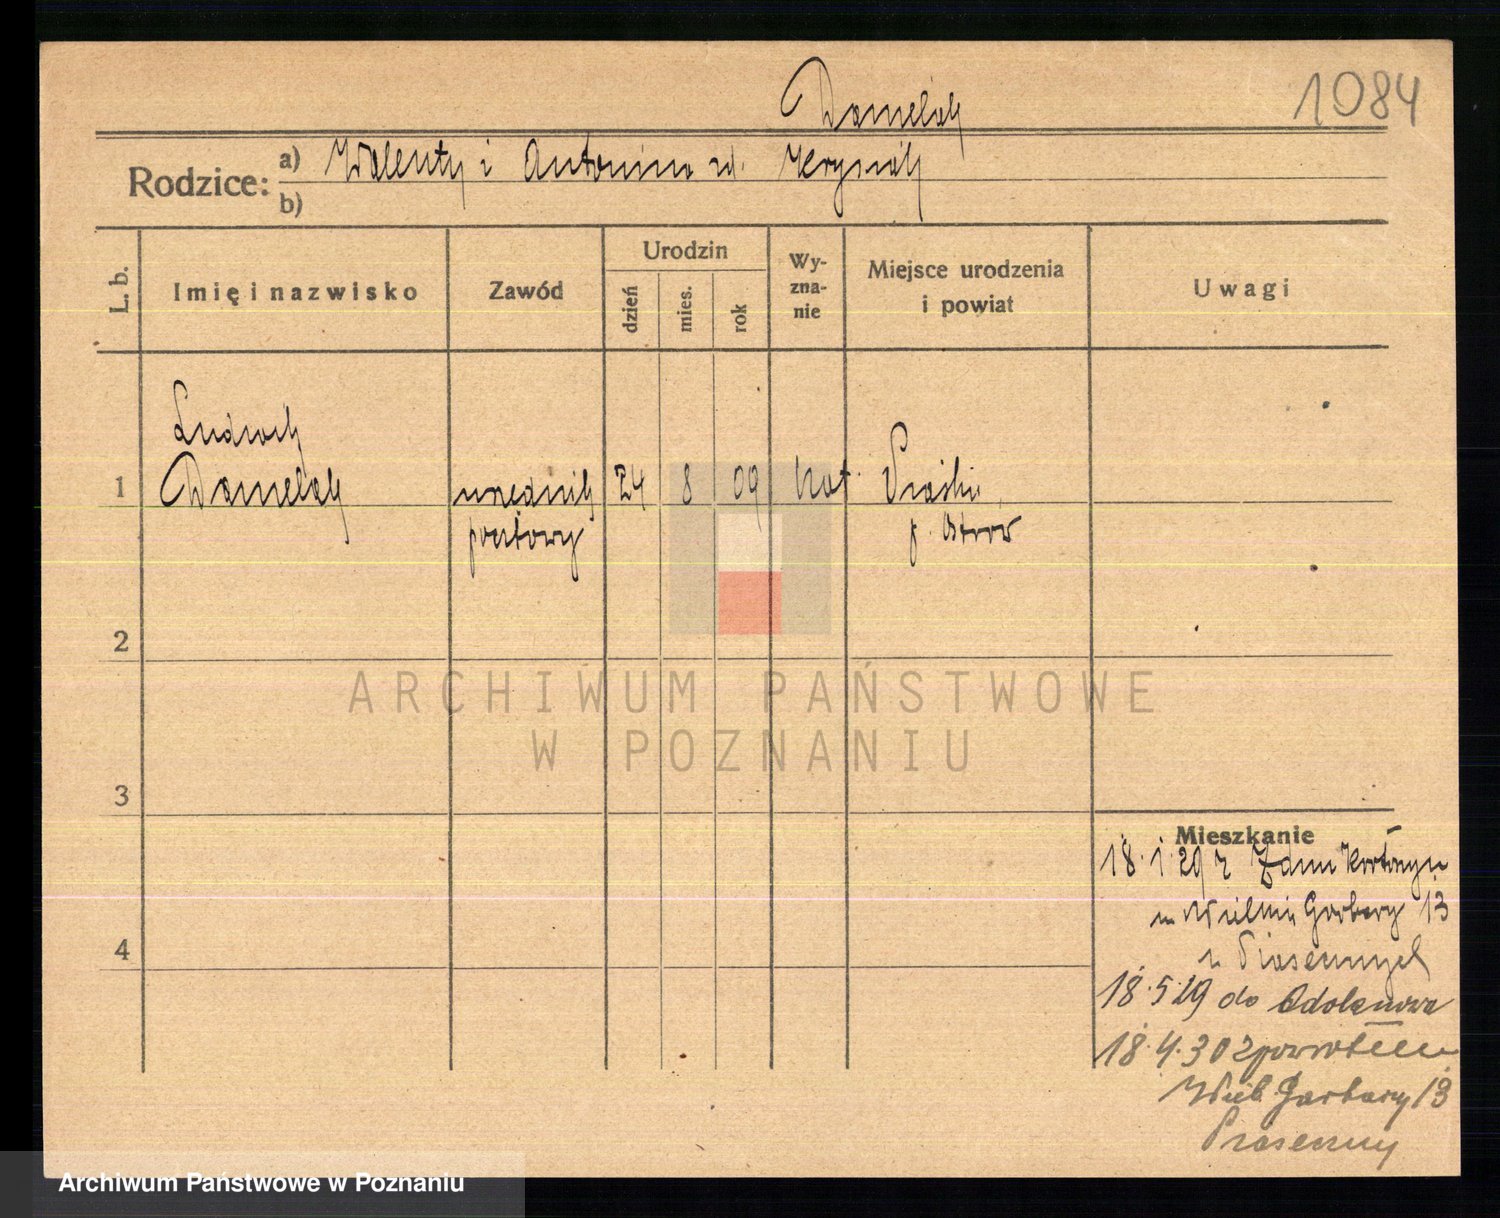 1084
Danielak
Rodzice:
a) Walenty i Antonina zd. Krysiak
b)
L. b.
Imię i nazwisko
Zawód
Urodzin
dzień
mies.
rok
Wy-
zna-
nie
Miejsce urodzenia
i powiat
Uwagi
Ludwik
1 Danielak urzędnik 24 8 09 kat.
pocztowy p. Ostrów
2
3
4
Mieszkanie
18.1.29 z
Wielkie Garbary 13
u
18.5.29 do Odolanowa
18.4.30 z powrotem
Wielk. Garbary 13
ARCHIWUM PAŃSTWOWE
W POZNANIU
Archiwum Państwowe w Poznaniu